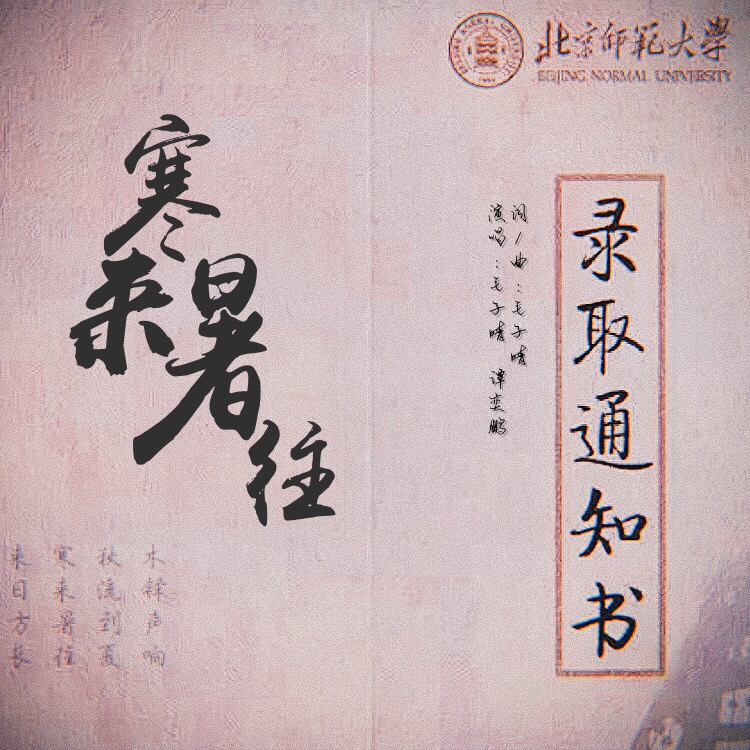 北京师范大学
BEIJING NORMAL UNIVERSITY
录取通知书
词/曲：毛子晴
演唱：毛子晴 谭奕鹏
寒来暑往
木铎声响
秋流到夏
寒来暑往
来日方长